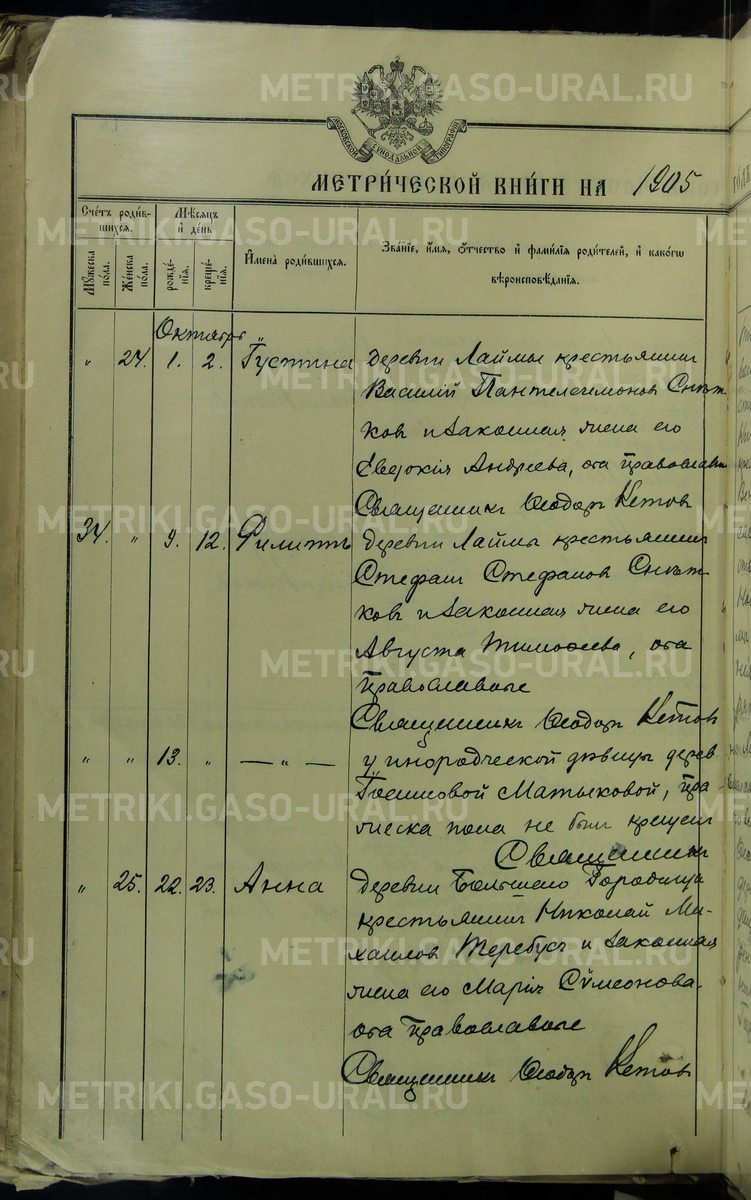 МОСКОВСКОЙ СѴНОДАЛЬНОЙ ТИПОГРАФІИ
МЕТРИ́ЧЕСКОЙ КНИ́ГИ НА 1905
Сче́тъ роди́в-
шихся.
Мꙋжеска по́ла.
Же́нска по́ла.
Мѣ́сяцъ и҆ де́нь
рожде́-
нїя.
креще́-
нїя.
И҆мена̀ роди́вшихся.
Зва́нїе, и҆́мѧ, ѻ҆́тчество и҆ фами́лїѧ роди́телей, и҆ како́гѡ
вѣроисповѣ́данїѧ.
Октябрь
" 24. 1. 2. Густина деревни Лаймы крестьянинъ
Василій Пантелеимоновъ Снѣт-
ковъ и законная жена его
Евдокія Андреева, оба православн
Священникъ Ѳеодоръ Кетовъ
34. " 9. 12. Филиппъ деревни Лаймы крестьянинъ
Стефанъ Стефановъ Снѣт-
ковъ и законная жена его
Августа Тимоѳеева, оба
православные
Священникъ Ѳеодоръ Кетовъ
" " 13. " — " — у инородческой дѣвицы дерев
Матысковой,
жеска пола не былъ крещенъ
Священникъ
" 25. 22. 23. Анна деревни Большаго Городища
крестьянинъ Николай Ми-
хаиловъ Теребусъ и законная
жена его Марія Сѵмеонова.
оба православные
Священникъ Ѳеодоръ Кетовъ
METRIKI.GASO-URAL.RU